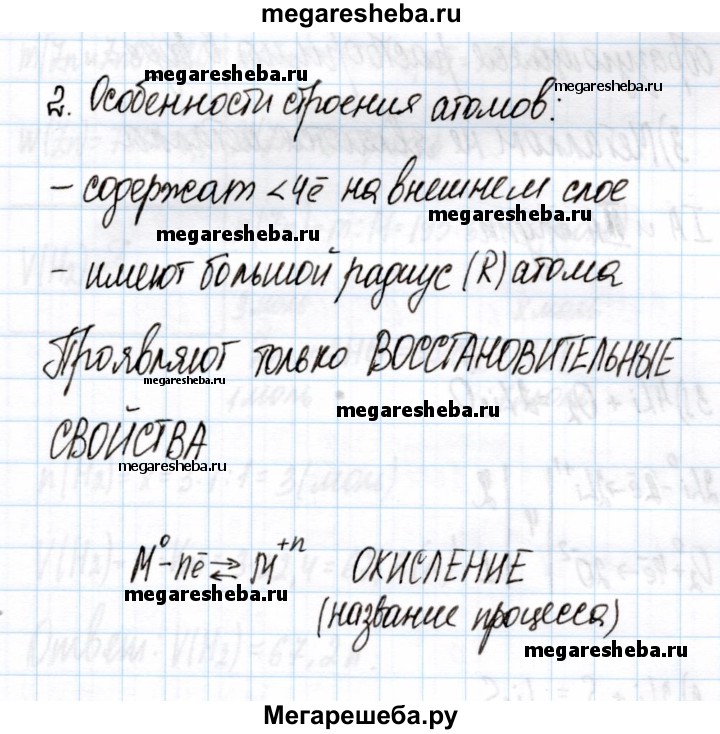 megaresheba.ru
megaresheba.ru
megaresheba.ru
2. Особенности строения атомов:
- содержат <4ē на внешнем слое
megaresheba.ru
megaresheba.ru
- имеют большой радиус (R) атома
Проявляют только ВОССТАНОВИТЕЛЬНЫЕ
megaresheba.ru
megaresheba.ru
СВОЙСТВА
megaresheba.ru
M⁰-nē⇄M⁺ⁿ ОКИСЛЕНИЕ
megaresheba.ru
(название процесса)
megaresheba.ru
Мегарешеба.ру